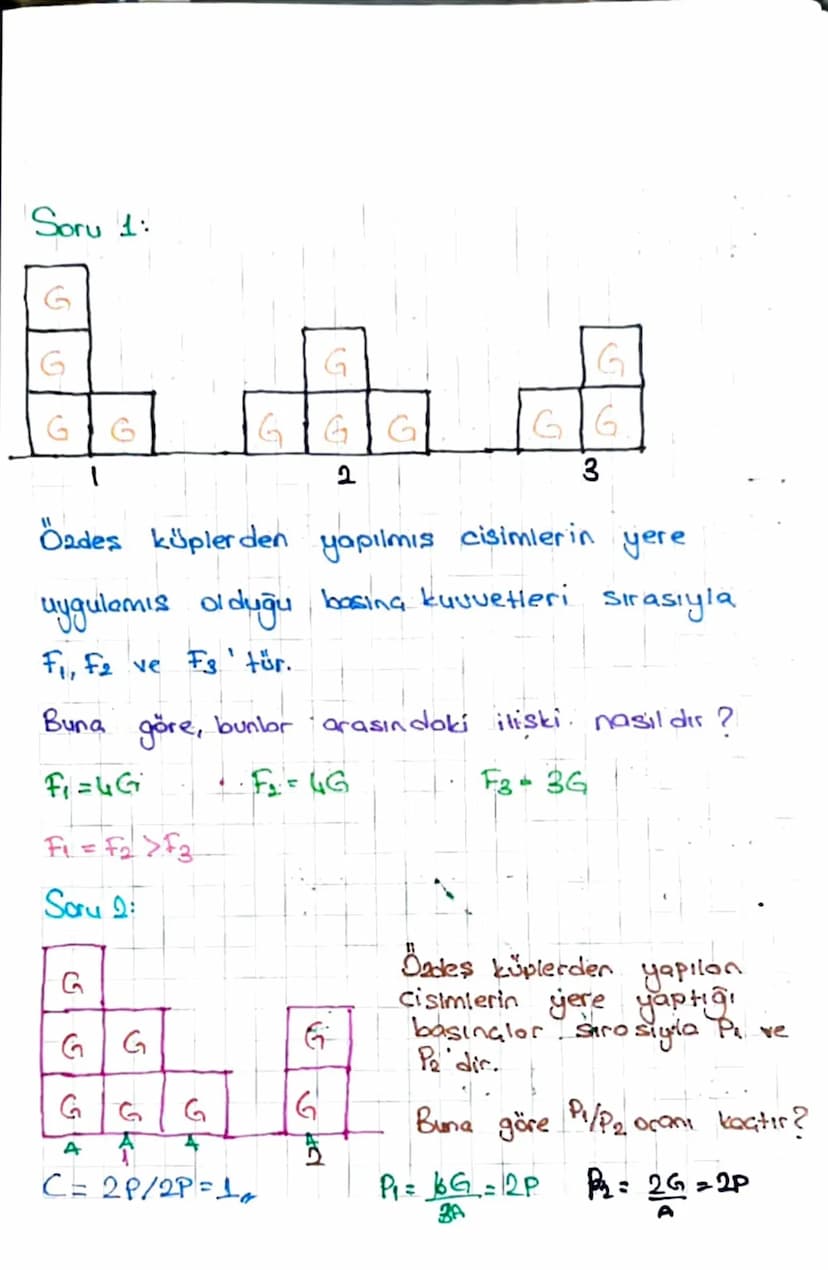 Soru 1:
G
G G G
G G G G G G G
1 2 3
Özdeş küplerden yapılmıs cisimlerin yere
uygulamıs olduğu basınç kuvvetleri sırasıyla
F1, F2 ve F3 'tür.
Buna göre, bunlar arasındaki ilişki nasıldır?
F1 = 4G F2 = 4G F3 = 3G
F1 = F2 > F3
Soru 2:
G
G G G
G G G G
A A A A
1 2
Özdeş küplerden yapılan
cisimlerin yere yaptığı
basınçlar sırasıyla P1 ve
P2'dir.
Buna göre P1/P2 oranı kaçtır?
C = 2P/2P = 1
P1 = 6G/3A = 2P P2 = 2G/A = 2P